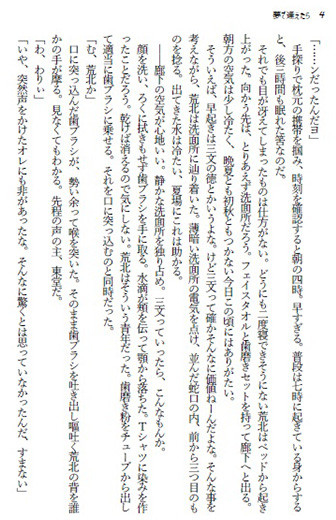 夢で逢えたら 4
「……ンだったんだヨ」
手探りで枕元の携帯を掴み、時刻を確認すると朝の四時。早すぎる。普段は七時に起きている身からする
と、後三時間も眠れた筈なのだ。
それでも目が冴えてしまったものは仕方がない。どうにも二度寝できそうにない荒北はベッドから起き
上がった。向かう先は、とりあえず洗面所だろう。フェイスタオルと歯磨きセットを持って廊下へと出る。
朝方の空気は少し冷たく、晩夏とも初秋ともつかない今日この頃にはありがたい。
そういえば、早起きは三文の徳とかいうよな。けど三文って確かそんなに価値ねーんだよな。そんな事を
考えながら、荒北は洗面所に辿り着いた。薄暗い洗面所の電気を点け、並んだ蛇口の内、前から三つ目のも
のを捻る。出てきた水は冷たい、夏場にこれは助かる。
――廊下の空気が心地いい。静かな洗面所を独り占め。三文っていったら、こんなもんか。
顔を洗い、ろくに拭きもせず歯ブラシを手に取る。水滴が頬を伝って顎から落ちた。Tシャツに染みを作
ったことだろう。乾けば消えるので気にしない。荒北はそういう青年だった。歯磨き粉をチューブから出し
て適当に歯ブラシに乗せる。それを口に突っ込むのと同時だった。
「む、荒北か」
口に突っ込んだ歯ブラシが、勢い余って喉を突いた。そのまま歯ブラシを吐き出し嘔吐く荒北の背を誰
かの手が摩る。見なくてもわかる。先程の声の主、東堂だ。
「わ、わりぃ」
「いや、突然声をかけたオレにも非があったな。そんなに驚くとは思っていなかったんだ、すまない」